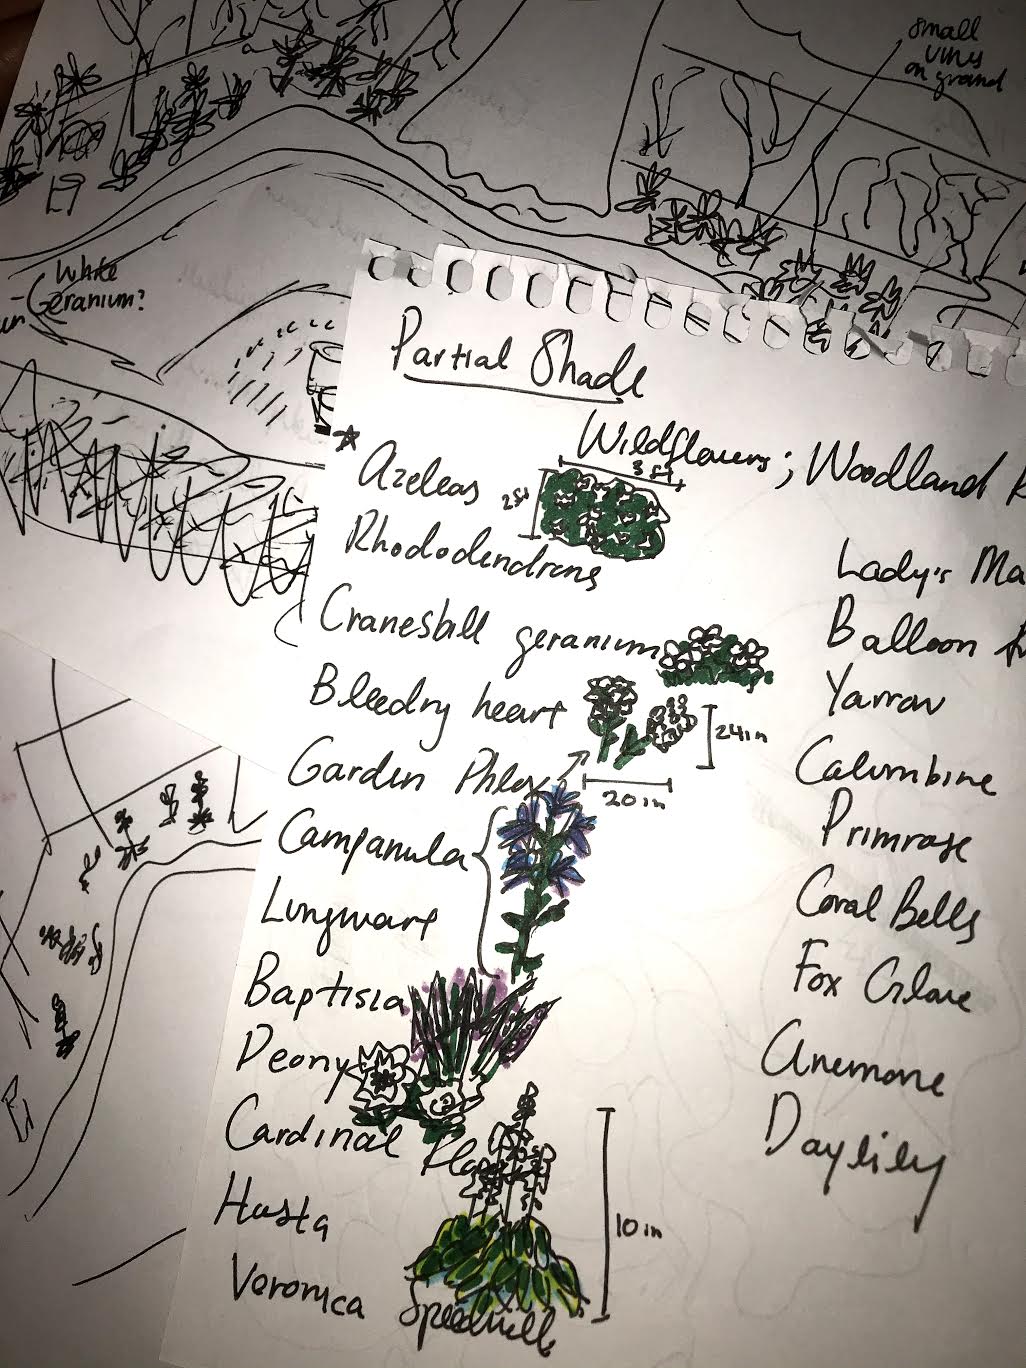 small
viny
on ground
White
Geranium?
Partial Shade
Wildflowers; Woodland
3 ft
Azeleas
2 ft
Rhododendrons
Cranesbill geranium
Bleeding heart
24 in
Garden Phlox
20 in
Campanula
Lungwart
Baptisia
Peony
Cardinal
Husta
10 in
Veronica Speedwell
Lady's Ma
Balloon
Yarrow
Calumbine
Primrose
Coral Bells
Fox Glove
Anemone
Daylily